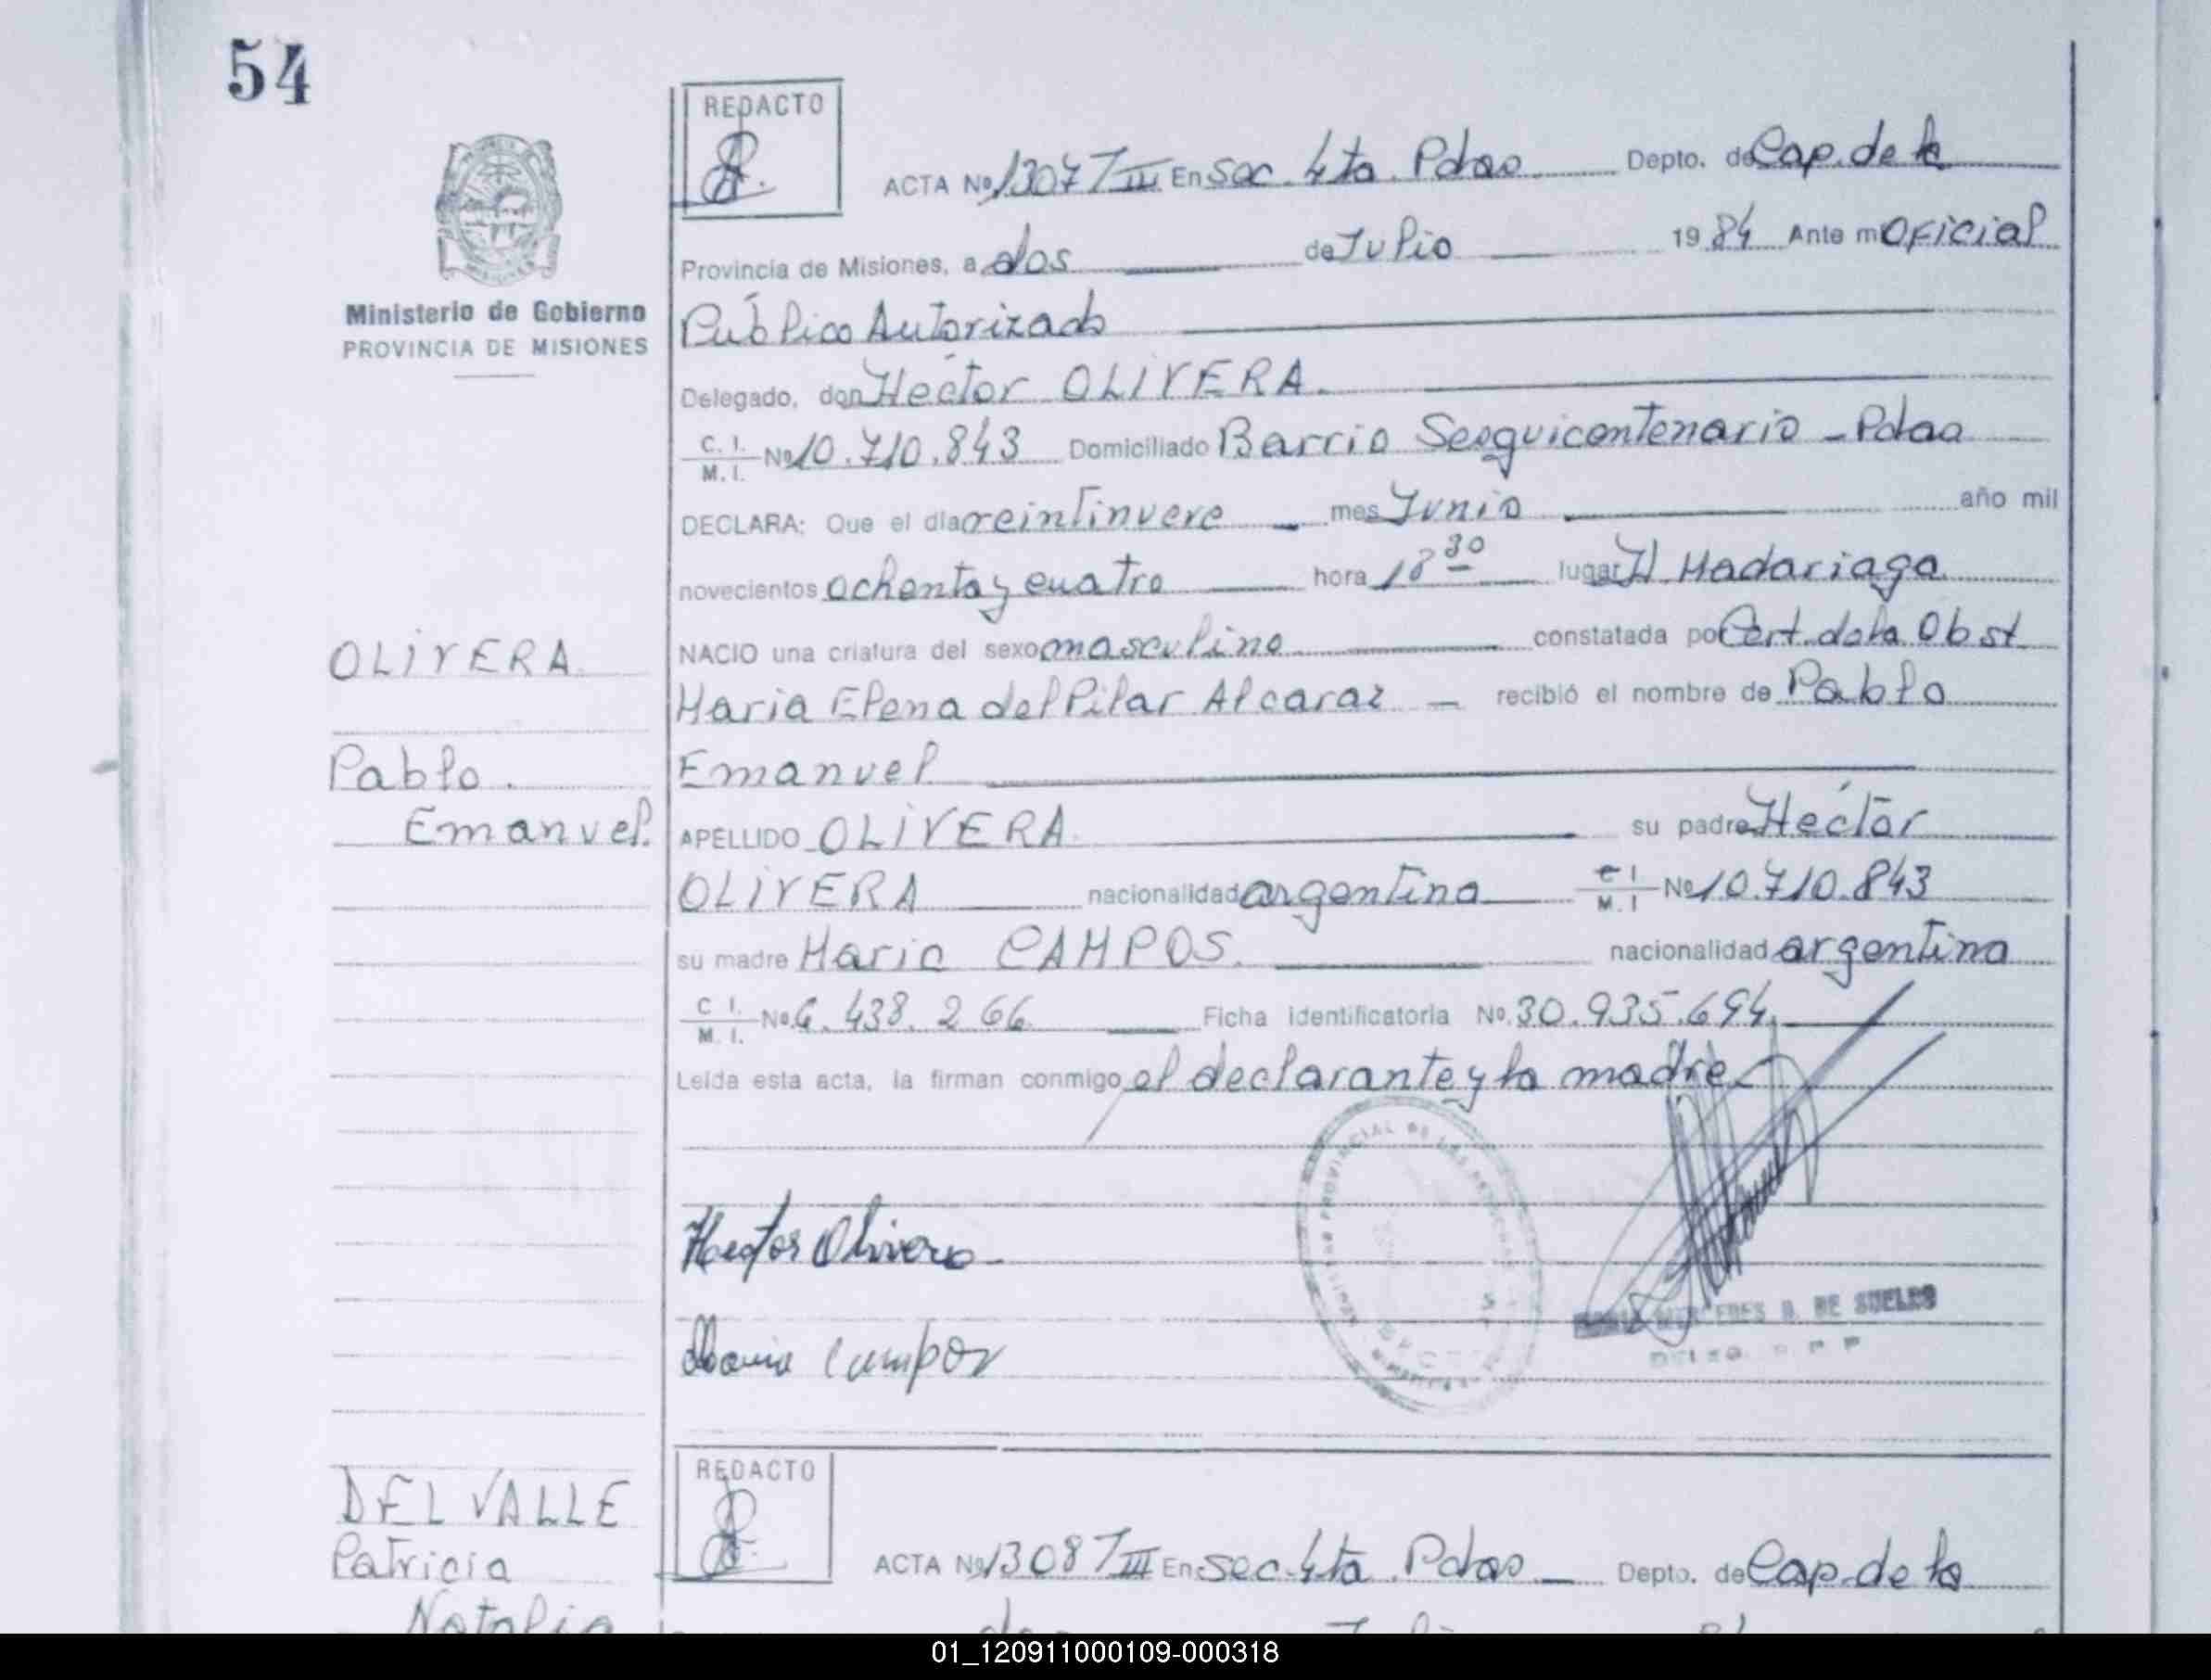 54
REDACTO
ACTA Nº 1307 T III En Sec. 4ta. Pdas Depto. de Cap. de la
Provincia de Misiones, a dos de Julio 1984 Ante mi Oficial
Público Autorizado
Delegado, don Héctor OLIVERA.
C. I. M. I. Nº 10.710.843 Domiciliado Barrio Sesquicentenario - Pdas
DECLARA: Que el día veintinueve mes Junio año mil
novecientos ochenta y cuatro hora 18 30 lugar H. Madariaga
NACIO una criatura del sexo masculino constatada por Cert. de la Obst
Maria Elena del Pilar Alcaraz recibió el nombre de Pablo
Emanuel
APELLIDO OLIVERA su padre Héctor
OLIVERA nacionalidad argentina C I M. I Nº 10.710.843
su madre Maria CAMPOS. nacionalidad argentina
C I. M. I. Nº 6.438.266 Ficha Identificatoria Nº 30.935.694
Leída esta acta, la firman conmigo el declarante y la madre
Ministerio de Gobierno
PROVINCIA DE MISIONES
OLIVERA
Pablo.
Emanuel.
Hector Olivera
Maria Campos
MERCEDES B. DE SUELDO
DEL VALLE
Patricia
Natalia
REDACTO
ACTA Nº 1308 T III En Sec. 4ta Pdas Depto. de Cap. de la
01_120911000109-000318